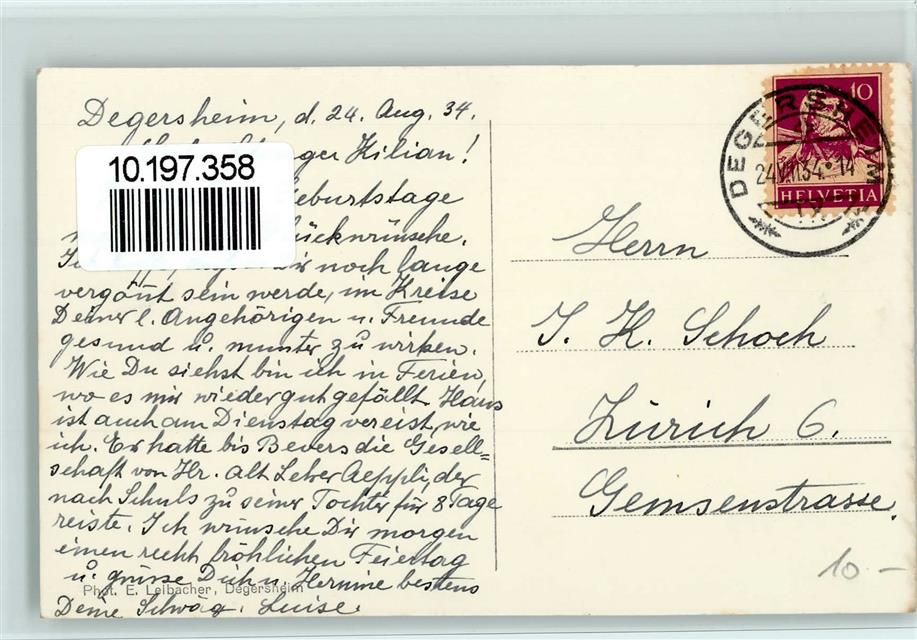 Degersheim, d. 24. Aug. 34.
Kilian!
10.197.358
Geburtstage
Glückwünsche.
Dir noch lange
vergönt sein werde, im Kreise
Deiner l. Angehörigen u. Freunde
gesund u. munter zu wirken.
Wie Du siehst bin ich in Ferien,
wo es mir wieder gut gefällt. Hans
ist auch am Dienstag vereist, wie
ich. Er hatte bis Bevers die Gesell-
schaft von Hr. alt Leher Aeppli, der
nach Schuls zu seiner Tochter für 8 Tage
reiste. Ich wünsche Dir morgen
einen recht fröhlichen Feiertag
u. grüsse Dich u. Hermine bestens
Phot. E. Leibacher, Degersheim
Deine Schwäg. Luise.
10
HELVETIA
DEGERSHEIM
24.VIII.34.14
Herrn
J. H. Schoch
Zürich 6.
Gemsenstrasse.
10.-